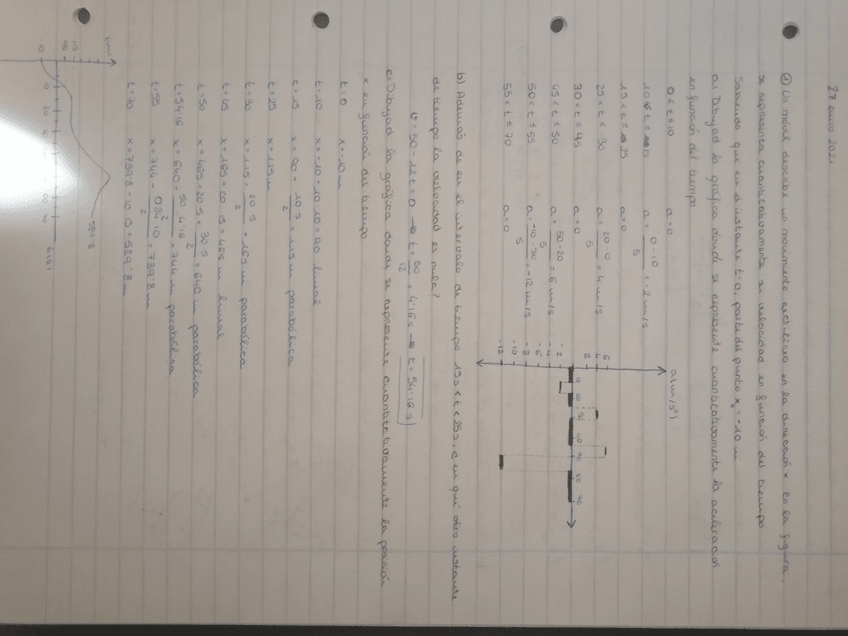 27 enero 2021
① Un móvil describe un movimiento rectilíneo en la dirección x. En la figura,
se representa cuantitativamente su velocidad en función del tiempo
Sabiendo que en el instante t=0, parte del punto x₀=-10 m
a) Dibujad la gráfica donde se represente cuantitativamente la aceleración
en función del tiempo
0 ≤ t ≤ 10 a=0
10 ≤ t ≤ 15 a = 0-10 / 5 = -2 m/s
15 < t ≤ 25 a=0
25 < t ≤ 30 a = 20-0 / 5 = 4 m/s
30 < t ≤ 45 a=0
45 < t ≤ 50 a = 50-20 / 5 = 6 m/s
50 < t ≤ 55 a = -10-50 / 5 = -12 m/s
55 < t ≤ 70 a=0
a(m/s²)
6
4
2
-2
-4
-6
-8
-10
-12
10 20 30 40 50 60 70
b) Además de en el intervalo de tiempo 15s<t<25s, ¿en qué otro instante
de tiempo la velocidad es nula?
v = 50 - 12t = 0 → t = 50 / 12 = 4'16 s → t = 54'16 s
c) Dibujad la gráfica donde se represente cuantitativamente la posición
x en función del tiempo
t=0 x=-10 m
t=10 x=-10+10·10=90 lineal
t=15 x=90+ 10·5 / 2 =115 m parabólica
t=25 x=115 m
t=30 x=115+ 20·5 / 2 =165 m parabólica
t=45 x=165+20·15=465 m lineal
t=50 x=465+20·5+ 30·5 / 2 =640 m parabólica
t=54'16 x=640+ 50·4'16 / 2 =744 m parabólica
t=55 x=744- 0'84·10 / 2 =739'8 m
t=70 x=739'8-10·15=589'8 m
x(m)
115
90
-10
10 20 30
589'8
t(s)